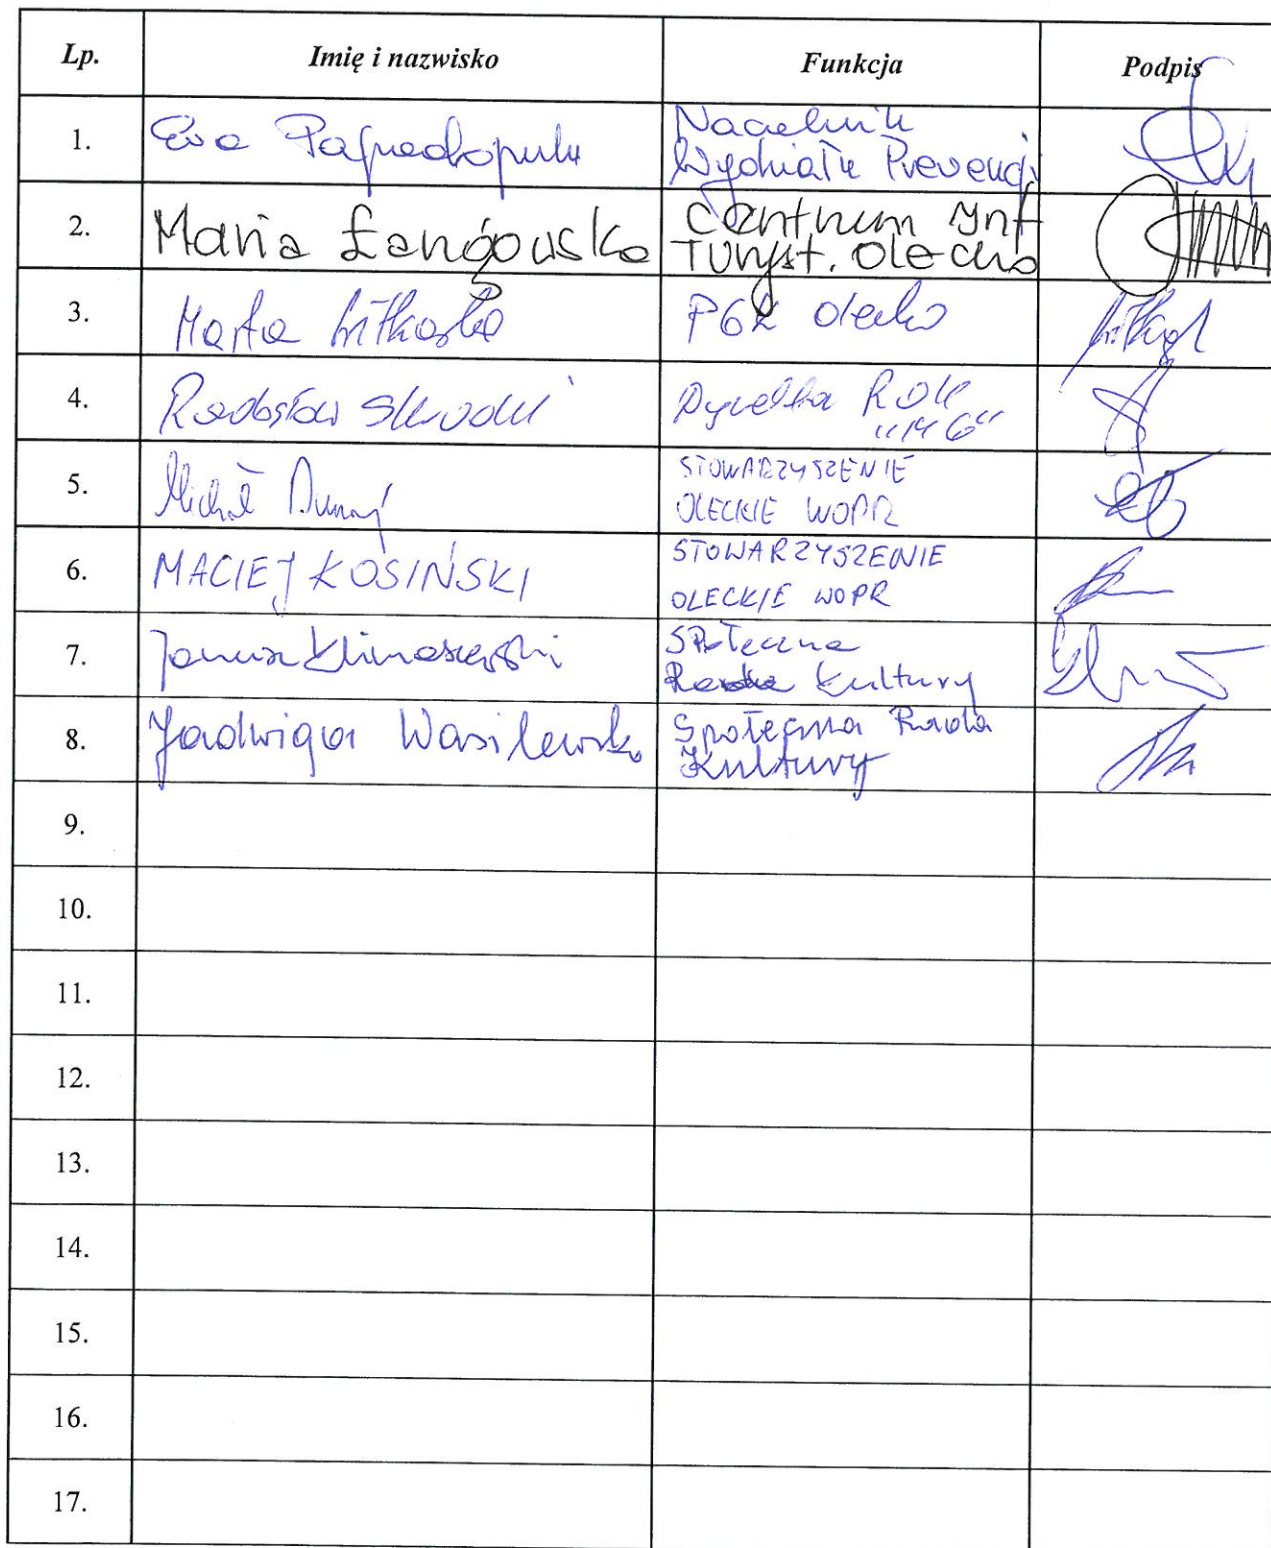 Lp. Imię i nazwisko Funkcja Podpis
1. Ewa Naczelnik
Wydziału Prewencji
2. Maria Łangowska Centrum Inf
Turyst. Olecko
3. Marta PGK Olecko
4. Radosław Skrodzki Dyrektor ROK
"MG"
5. Michał Dunaj STOWARZYSZENIE
OLECKIE WOPR
6. MACIEJ KOSIŃSKI STOWARZYSZENIE
OLECKIE WOPR
7. Janusz Klimaszewski Społeczna
Rada Kultury
8. Jadwiga Wasilewska Społeczna Rada
Kultury
9.
10.
11.
12.
13.
14.
15.
16.
17.